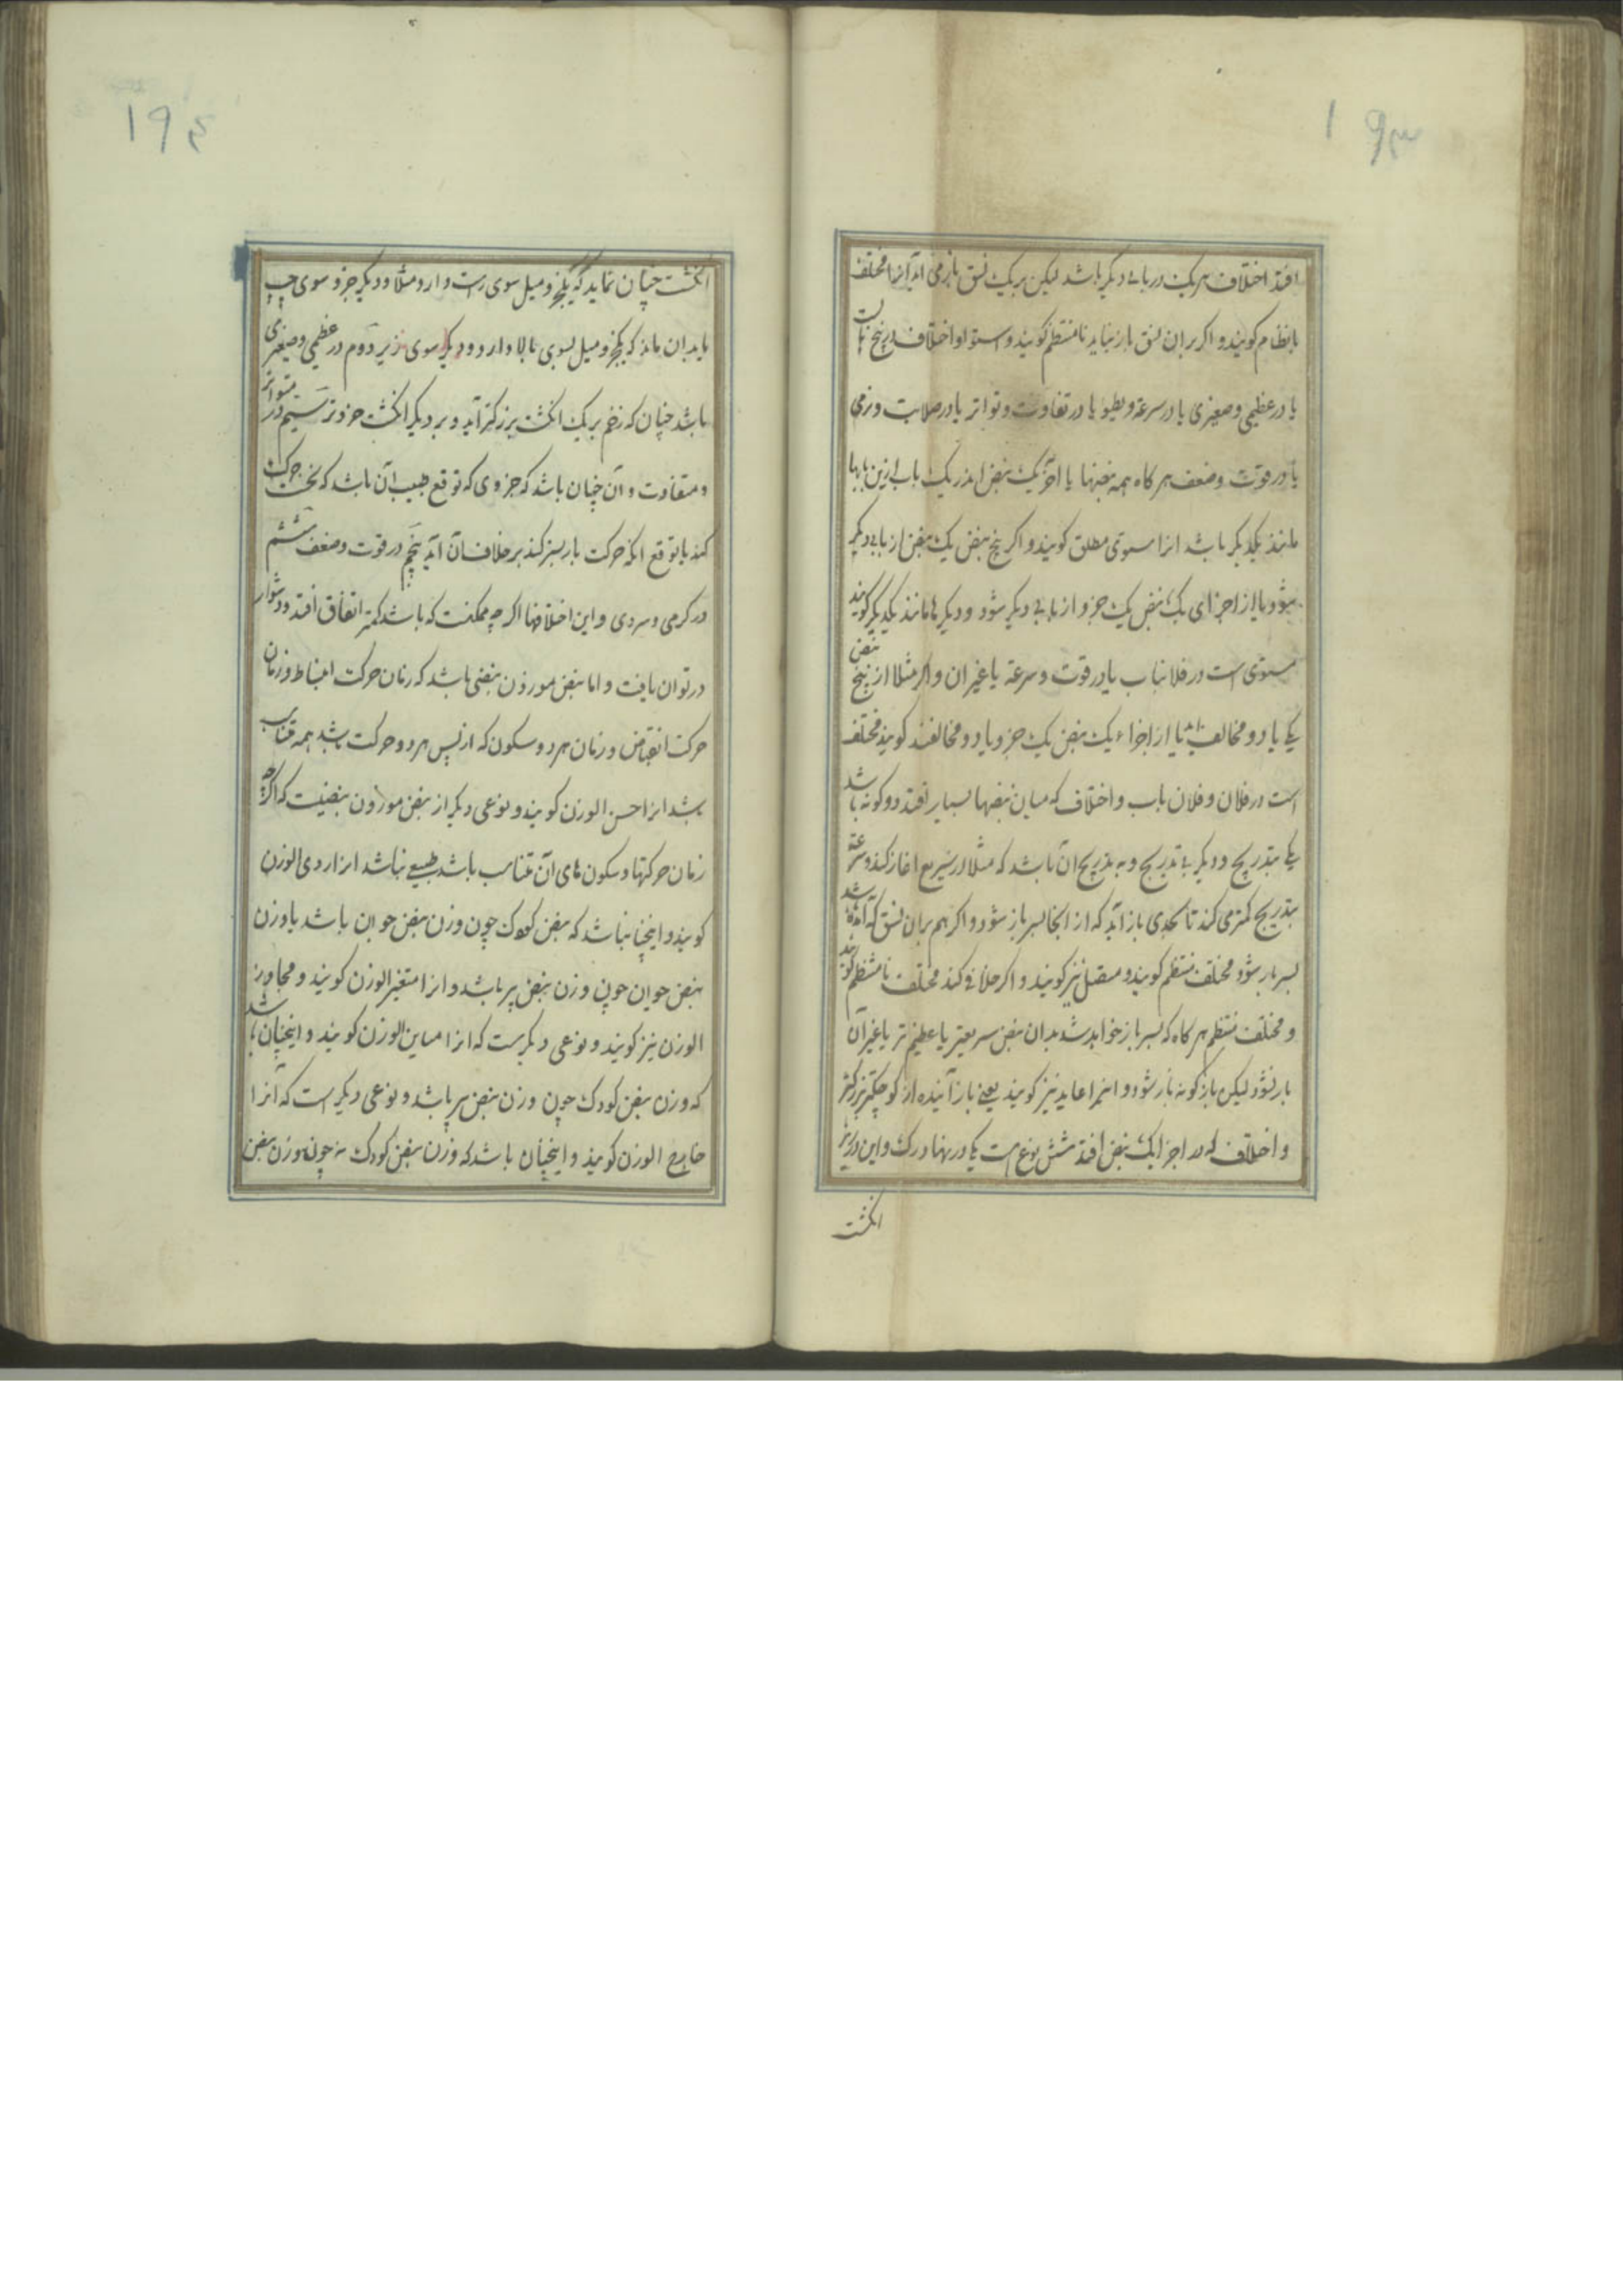 ۱۹۳
افتد اختلاف هر یک در بابی دیگر باشد لیکن بر یک نسق باز می آید آنرا مختلف
بانظام کویند و اکر بران نسق باز نیاید نامنتظم کویند و استوا و اختلاف در پنج بابست
یا در عظیمی و صغیری یا در سرعة و بطیو یا در تفاوت و تواتر یا در صلابت و نرمی
یا در قوت و ضعف هر کاه همه نبضها یا اجزا یک نبض اندر یک باب ازین بابها
مانند یکدیکر باشد انرا مستوی مطلق کویند و اکر پنج نبض یک نبض از بابی دیکر
شود یا از اجزای یک نبض یک جزو از بابی دیکر شود و دیکر ها مانند یکدیکر کویند
مستوی است در فلان باب یا در قوت و سرعة یا غیر ان و اکر مثلا از پنج نبض
یکی یا دو مخالف باشد یا از اجزاء یک نبض یک جزو یا دو مخالفند کویند مختلف
است در فلان و فلان باب و اختلاف که میان نبضها بسیار افتد دو کونه باشد
یکی بتدریج و دیکر بی تدریج و بتدریج ان باشد که مثلا از سریع اغاز کند و سرعة
بتدریج کمتر می کند تا بحدی باز آید که از انجا بسر باز شود و اکر هم بران نسق که آمده باشد
بسر باز شود مختلف منتظم کویند و متصل نیز کویند و اکر خلافی کند مختلف نامنتظم کویند
و مختلف منتظم هر کاه که بسر باز خواهد شد بدان نبض سریعتر یا عظیم تر یا غیر آن
باز نشود لیکن باز کونه باز شود و انرا عاید نیز کویند یعنی باز آینده از کوچکتر بزرکتر
و اختلاف که در اجزا یک نبض افتد شش نوع است یکی در نهاد رک و این در زیر
انکشت
۱۹۴
انکشت چنان نماید که یکجزو میل سوی راست دارد مثلا و دیکر جزو سوی چپ
یا بدان ماند که یکجزو میل بسوی بالا دارد و دیکر سوی زیر دوم در عظمی و صغیری
باشد چنان که زخم بر یک انکشت بزرکتر آید و بر دیکر انکشت خردتر سیم در متواتر
و متفاوت و آن چنان باشد که جزوی که توقع طبیب آن باشد که نخست حرکت
کند یا توقع انکه حرکت بازپسز کند بر خلاف آن آید پنجم در قوت و ضعف ششم
در کرمی و سردی و این اختلافها اکر چه ممکنست که باشد کمتر اتفاق افتد و دشوار
در توان یافت و اما نبض موزون نبضی باشد که زمان حرکت انبساط و زمان
حرکت انقباض و زمان هر دو سکون که از پس هر دو حرکت باشد همه متناسب
باشد انرا حسن الوزن کویند و نوعی دیکر از نبض موزون نبضیست که اکر چه
زمان حرکتها و سکون های آن متناسب باشد طبیعی نباشد انرا ردی الوزن
کویند و اینچنان باشد که نبض کودک چون وزن نبض جوان باشد یا وزن
نبض جوان چون وزن نبض پیر باشد و انرا متغیر الوزن کویند و مجاوز
الوزن نیز کویند و نوعی دیکرست که انرا مباین الوزن کویند و اینچنان باشد
که وزن نبض کودک چون وزن نبض پیر باشد و نوعی دیکر است که آنرا
خارج الوزن کویند و اینچنان باشد که وزن نبض کودک نه چون وزن نبض